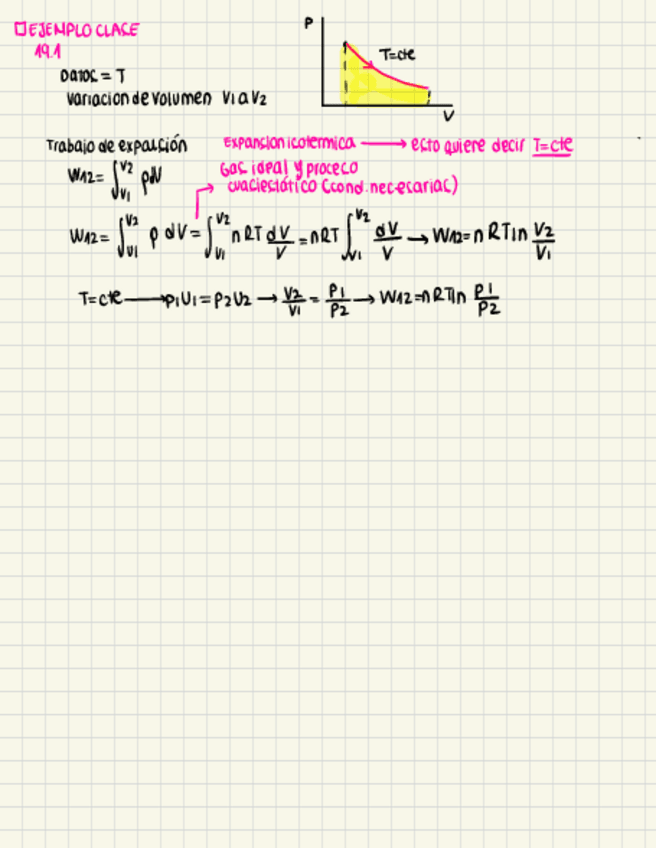 EJEMPLO CLASE
19.1
DATOS = T
variacion de volumen V1 a V2
P
T=cte
V
Trabajo de expansión
Expansion isotermica → esto quiere decir T=cte
Gas ideal y proceso
cuasiestático (cond. necesarias)
W12 = ∫_{V1}^{V2} pdV
W12 = ∫_{V1}^{V2} p dV = ∫_{V1}^{V2} nRT dV/V = nRT ∫_{V1}^{V2} dV/V → W12 = nRT ln V2/V1
T=cte → P1V1 = P2V2 → V2/V1 = P1/P2 → W12 = nRT ln P1/P2